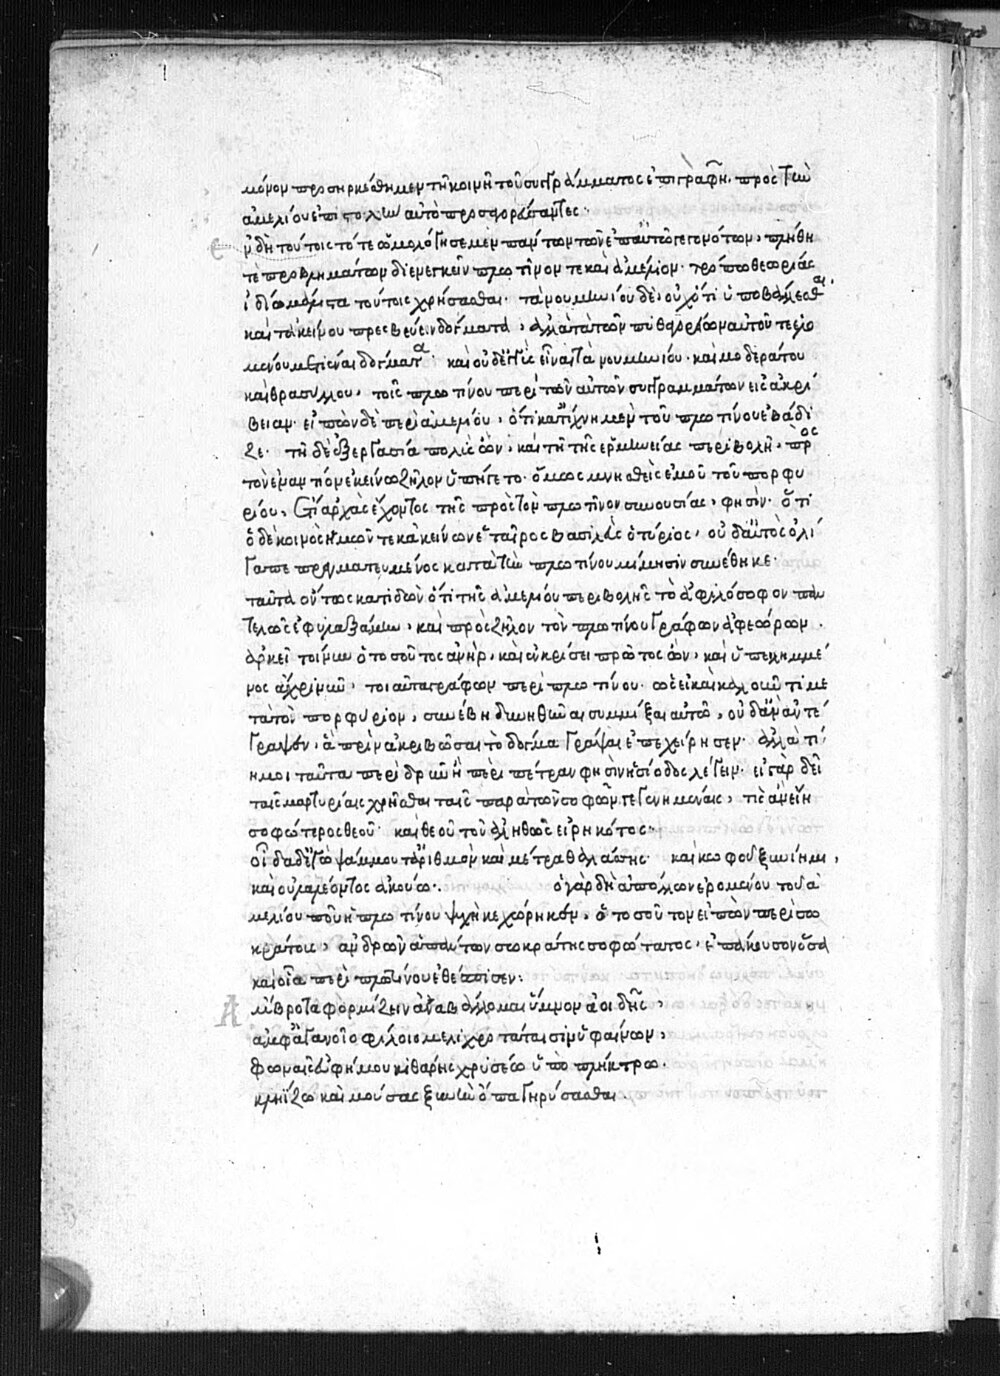 μόνον προσηρκέσθημεν τῆ κοινῆ τοῦ συγγράμματος ἐπιγραφῆ. πρὸς τὴν
ἀμελίου ἐπιστολὴν αὐτὸ προσφωνήσαντες·
ἤδη τούτοις τό τε ὡμολόγησε μὲν πάντων τῶν ἐπ' αὐτοῦ γεγονότων, πλήθη
τὲ προβλημάτων διενεγκεῖν πλωτῖνον τε καὶ ἀμέλιον· τρόπω θεωρίας
ἰδίω μάλιστα τούτοις χρήσασθαι· τὰ νουμηνίου δὲ, οὐχ ὅτι ὑποβάλλεσθαι,
καὶ τἀκείνου πρεσβεύειν δόγματα, ἀλλὰ τὰ τῶν πυθαγορείων αὐτοῦ τε ἑλο
μένου μετιέναι δόγματα· καὶ οὐδ' ἐγγύς εἶναι τὰ νουμηνίου· καὶ μοδεράτου
καὶ θρασύλλου, τοῖς πλωτίνου περὶ τῶν αὐτῶν συγγράμμασιν εἰς ἀκρί
βειαν· εἰπὼν δὲ περὶ ἀμελίου, ὅτι κατ' ἴχνη μὲν τοῦ πλωτίνου ἐβάδι
ζε· τῆ δὲ ἐξεργασία πολὺς ὢν, καὶ τῆ τῆς ἑρμηνείας περιβολῆ, πρὸς
τὸν ἐναντίον ἐκείνω ζῆλον ὑπήγετο· ὅμως μνησθεὶς ἐμοῦ τοῦ πορφυ
ρίου, ἔτι ἀρχὰς ἔχοντος τῆς πρὸς τὸν πλωτῖνον συνουσίας, φησὶν· ὅτι
ὁ δὲ κοινὸς ἡμῶν τε κἀκείνων ἑταῖρος βασιλεὺς ὁ τύριος, οὐδ' αὐτὸς ὀλί
γα πεπραγματευμένος κατὰ τὴν πλωτίνου μίμησιν συνέθηκε·
ταῦτα οὕτως κατιδὼν ὅτι τῆς ἀμελίου περιβολῆς τὸ ἀφιλόσοφον παν
τελῶς ἐφυλαξάμην, καὶ πρὸς ζῆλον τὸν πλωτίνου γράφων ἀφεώρων·
ἀρκεῖ τοίνυν ὁ τοσοῦτος ἀνὴρ, καὶ ἐν κρίσει πρῶτος ὢν, καὶ ὑπειλημμέ
νος ἄχρι νῦν, τοιαῦτα γράφων περὶ πλωτίνου· ὡς εἰ καὶ καλοῦντί με
τάτον πορφύριον, συνέβη δυνηθῆναι συμμίξαι αὐτῶ, οὐδ' ἂν ἀντέ
γραψεν, ἃ πρὶν ἀκριβῶσαι τὸ δόγμα γράψαι ἐπεχείρησεν· ἀλλὰ τί
ἢ μοι ταῦτα περὶ δρῦν ἢ περὶ πέτραν φησὶν ἡσίοδος λέγειν· εἰ γὰρ δεῖ
ταῖς μαρτυρίαις χρῆσθαι ταῖς παρὰ τῶν σοφῶν γεγενημέναις, τίς ἂν εἴη
σοφώτερος θεοῦ· καὶ θεοῦ τοῦ ἀληθῶς εἰρηκότος·
οἶδα δ' ἐγὼ ψάμμου τ' ἀριθμὸν καὶ μέτρα θαλάσσης· καὶ κωφοῦ ξυνίημι,
καὶ οὐ λαλέοντος ἀκούω·. ὁ γὰρ δὴ ἀπόλλων ἐρομένου τοῦ ἀ
μελίου ποῦ ἡ πλωτίνου ψυχὴ κεχώρηκεν, ὁ τοσοῦτον εἰπὼν περὶ σω
κράτους, ἀνδρῶν ἁπάντων σωκράτης σοφώτατος, ἐπάκουσον ὅσα
καὶ οἷα περὶ πλωτίνου ἐθέσπισεν:
ἄμβροτα φορμίζειν ἀναβάλλομαι ὕμνον ἀοιδῆς
ἀμφ' ἀγανοῖο φίλοιο μελιχροτάταισιν ὑφαίνων,
φωναῖς εὐφήμου κιθάρης χρυσέω ὑπὸ πλήκτρω.
κλήζω καὶ μούσας ξυνὴν ὄπα γηρύσασθαι.